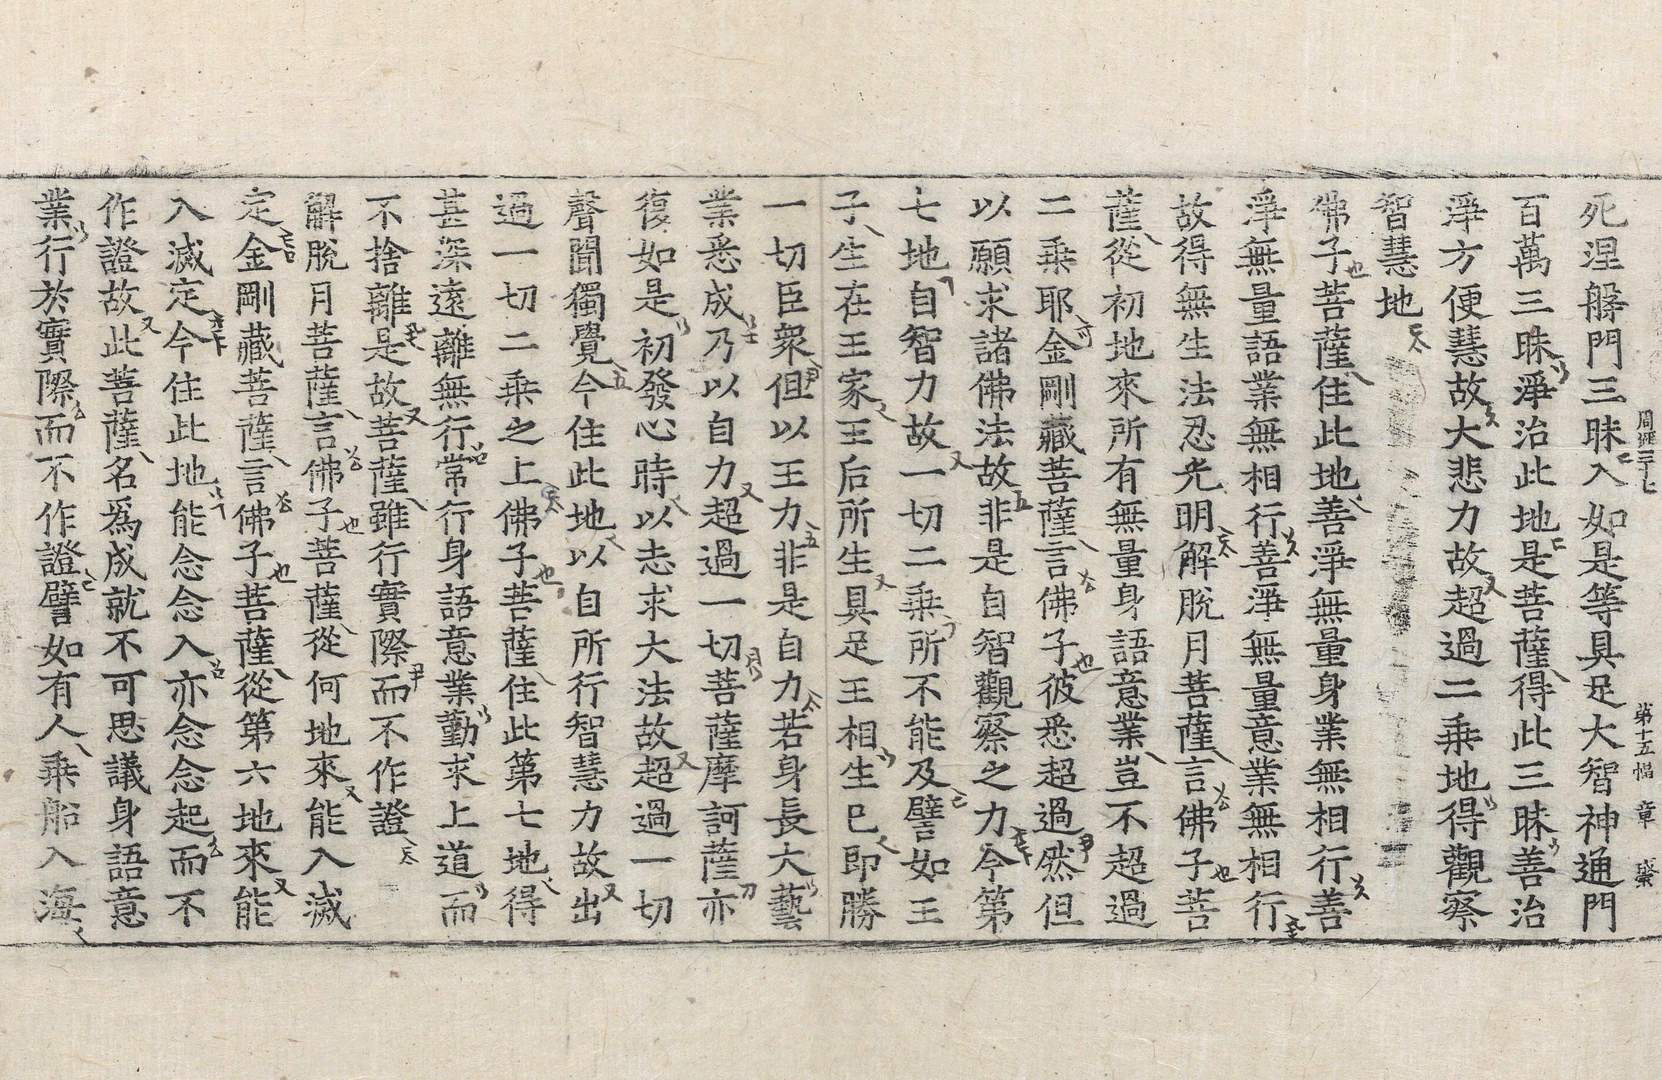 周經三十七 第十五幅 章
死涅槃門三昧入如是等具足大智神通門
百萬三昧淨治此地是菩薩得此三昧善治
淨方便慧故大悲力故超過二乘地得觀察
智慧地
佛子菩薩住此地善淨無量身業無相行善
淨無量語業無相行善淨無量意業無相行
故得無生法忍光明解脫月菩薩言佛子菩
薩從初地來所有無量身語意業豈不超過
二乘耶金剛藏菩薩言佛子彼悉超過然但
以願求諸佛法故非是自智觀察之力今第
七地自智力故一切二乘所不能及譬如王
子生在王家王后所生具足王相生已即勝
一切臣衆但以王力非是自力若身長大藝
業悉成乃以自力超過一切菩薩摩訶薩亦
復如是初發心時以志求大法故超過一切
聲聞獨覺今住此地以自所行智慧力故出
過一切二乘之上佛子菩薩住此第七地得
甚深遠離無行常行身語意業勤求上道而
不捨離是故菩薩雖行實際而不作證
解脫月菩薩言佛子菩薩從何地來能入滅
定金剛藏菩薩言佛子菩薩從第六地來能
入滅定今住此地能念念入亦念念起而不
作證故此菩薩名爲成就不可思議身語意
業行於實際而不作證譬如有人乘船入海